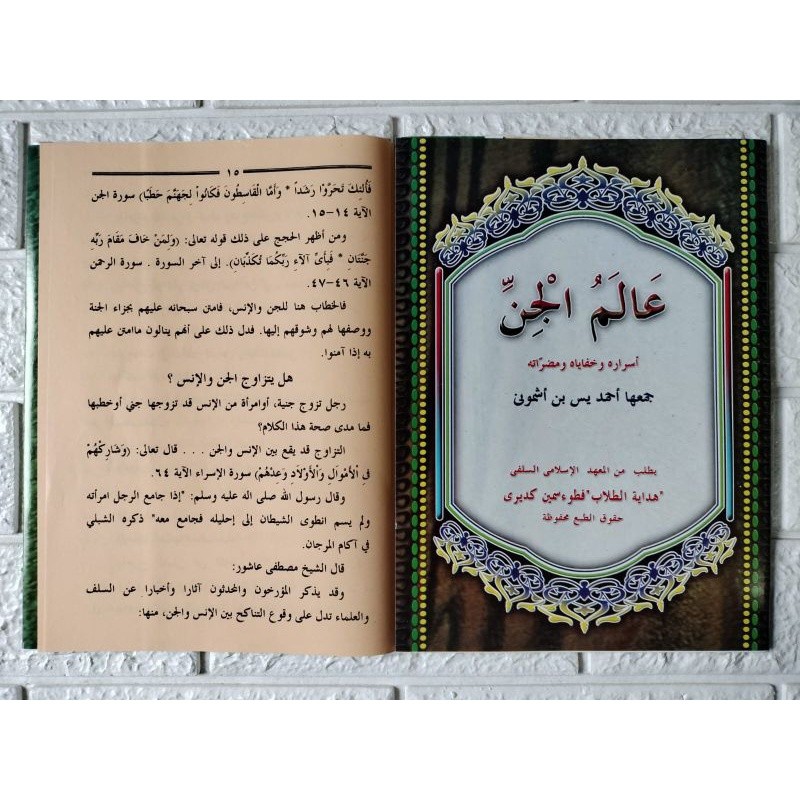 ١٥
فَأُلئِكَ تَحَرَّوْا رَشَداً * وَأَمَّا الْقَاسِطُونَ فَكَانُواْ لِجَهَنَّمَ حَطَبًا) سورة الجن
الآية ١٤-١٥.
ومن أظهر الحجج على ذلك قوله تعالى: (وَلِمَنْ خَافَ مَقَامَ رَبِّهِ
جَنَّتَانِ * فَبِأَىِّ آلآءِ رَبِّكُمَا تُكَذِّبَانِ). إلى آخر السورة . سورة الرحمن
الآية ٤٦-٤٧.
فالخطاب هنا للجن والإنس، فامتن سبحانه عليهم بجزاء الجنة
ووصفها لهم وشوقهم إليها. فدل ذلك على أنهم ينالون ماامتن عليهم
به إذا آمنوا.
هل يتزاوج الجن والإنس ؟
رجل تزوج جنية، أوامرأة من الإنس قد تزوجها جني أوخطبها
فما مدى صحة هذا الكلام؟
التزاوج قد يقع بين الإنس والجن . . . قال تعالى: (وَشَارِكْهُمْ
فِى الْأَمْوَالِ وَالْأَوْلَادِ وَعِدْهُمْ) سورة الإسراء الآية ٦٤.
وقال رسول الله صلى اله عليه وسلم: "إذا جامع الرجل امرأته
ولم يسم انطوى الشيطان إلى إحليله فجامع معه" ذكره الشبلي
في آكام المرجان.
قال الشيخ مصطفى عاشور:
وقد يذكر المؤرخون والمحدثون آثارا وأخبارا عن السلف
والعلماء تدل على وقوع التناكح بين الإنس والجن، منها:
عَالَمُ الْجِنِّ
أسراره وخفاياه ومضرّاته
جمعها أحمد يس بن أشمونى
يطلب من المعهد الإسلامى السلفى
"هداية الطلاب" فطوءسمبن كديرى
حقوق الطبع محفوظة